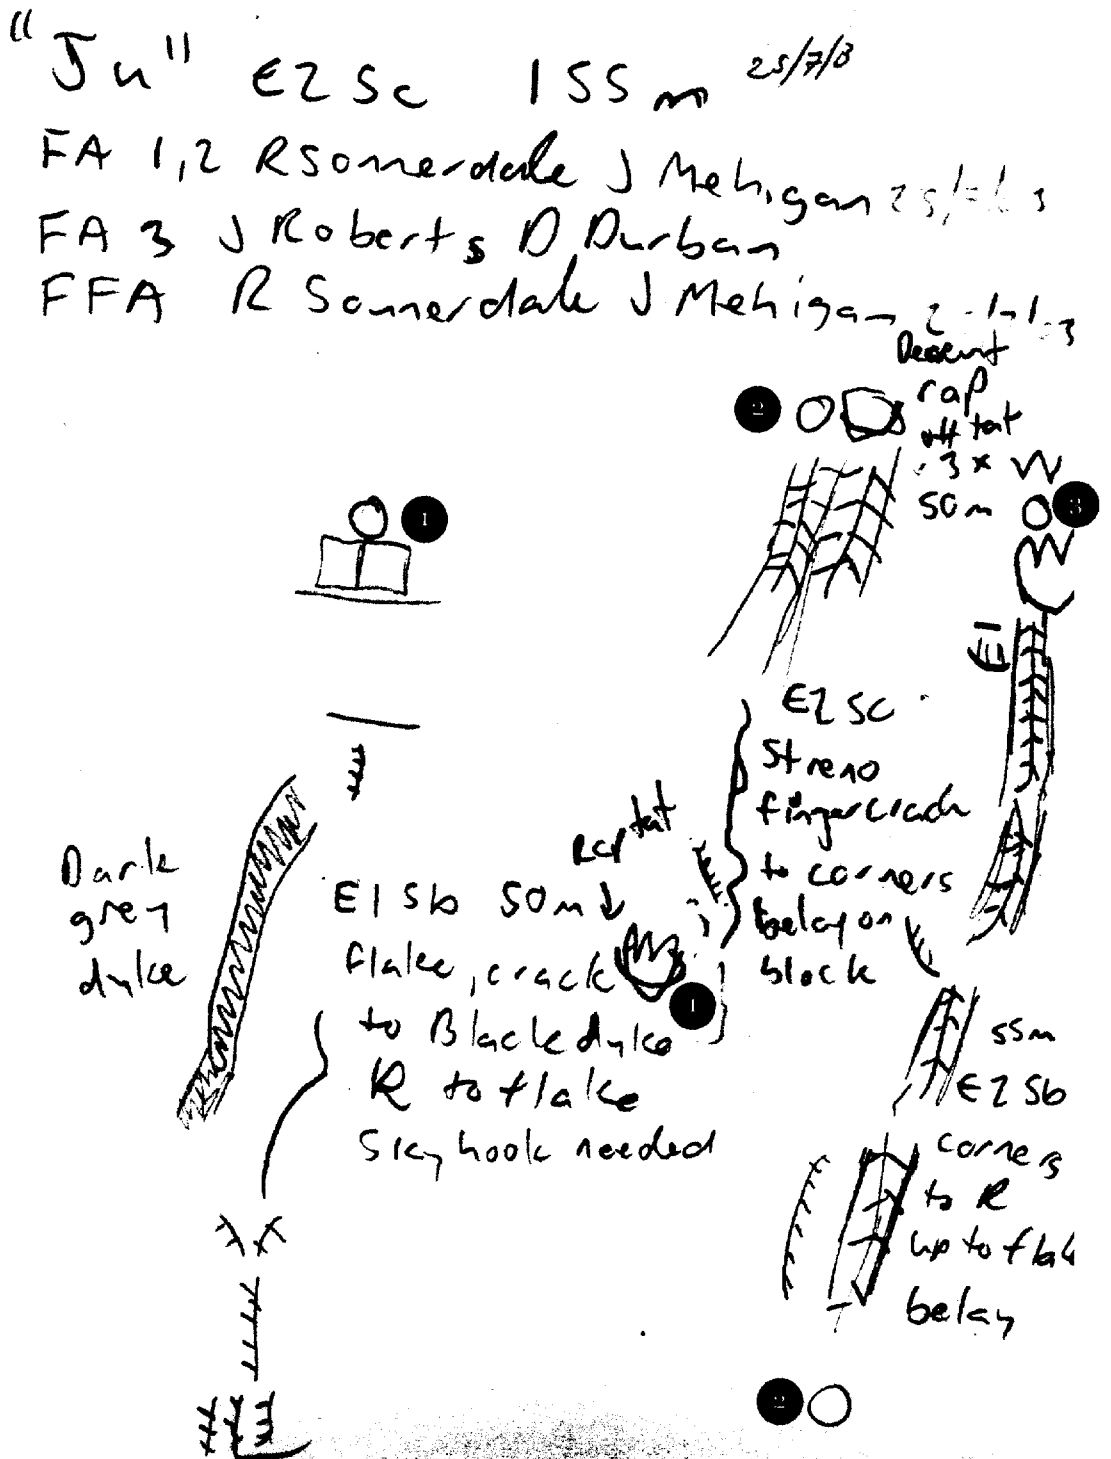 "Ju" E2 5c 155m 25/7/8
FA 1,2 R Sonnerdale J Mehigan
FA 3 J Roberts D Durban
FFA R Sonnerdale J Mehigan
Descent
rap
off tat
3x
50m
2
3
1
E1
E2 5c
Streno
fingercrack
to corners
belay on
block
Rap tat
Dark
grey
dyke
E1 5b 50m
flake, crack
to Black dyke
R to flake
Skyhook needed
1
55m
E2 5b
corners
to R
up to flak
belay
2